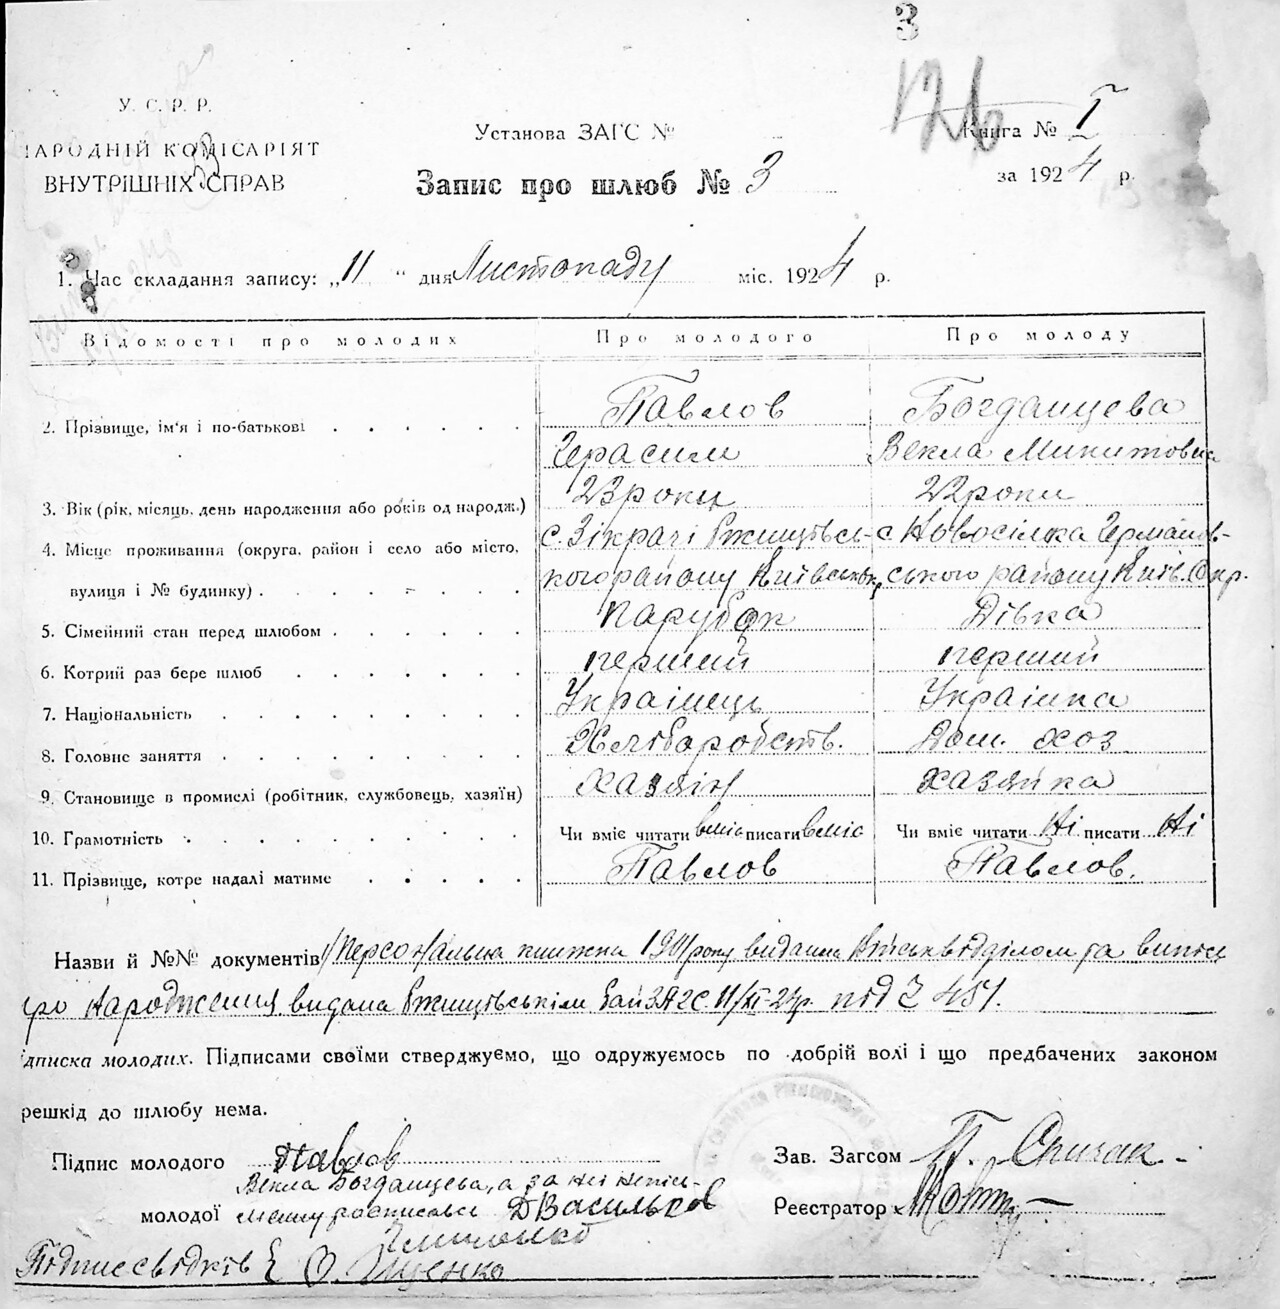 3
126
У. С. Р. Р.
НАРОДНІЙ КОМІСАРІЯТ
ВНУТРІШНІХ СПРАВ
Установа ЗАГС №
Запис про шлюб № 3
Книга № I
за 1924 р.
1. Час складання запису: „11" дня Листопаду міс. 1924 р.
Відомості про молодих Про молодого Про молоду
2. Прізвище, ім'я і по-батькові Павлов Богданцева
Герасим Векла Микитовна
3. Вік (рік, місяць, день народження або років од народж.) 23 роки 22 роки
4. Місце проживання (округа, район і село або місто, с. Зікрачі Ржищівсь- с. Новосілка Германов-
вулиця і № будинку) кого району Київськ ського району Київ. Окр.
5. Сімейний стан перед шлюбом парубок Дівка
6. Котрий раз бере шлюб перший перший
7. Національність Українець Українка
8. Головне заняття Хлібаробств. Дом. хоз
9. Становище в промислі (робітник, службовець, хазяїн) хазяін хазяйка
10. Грамотність Чи вміє читати вміє писати вміє Чи вміє читати Ні писати Ні
11. Прізвище, котре надалі матиме Павлов Павлов.
Назви й №№ документів Персональна книжка 1901 року видана Військвідділом та випись
про Народження видана Ржищівським Рай ЗАГС. 11/XI-24р. під № 451.
ідписка молодих. Підписами своїми стверджуємо, що одружуємось по добрій волі і що предбачених законом
решкід до шлюбу нема.
Підпис молодого Павлов
Векла Богданцева, а за неї непись-
молодої менну росписався Д Васильков
Зав. Загсом П. Спичак
Реєстратор
Підпис свідків Є
В. Іщенко